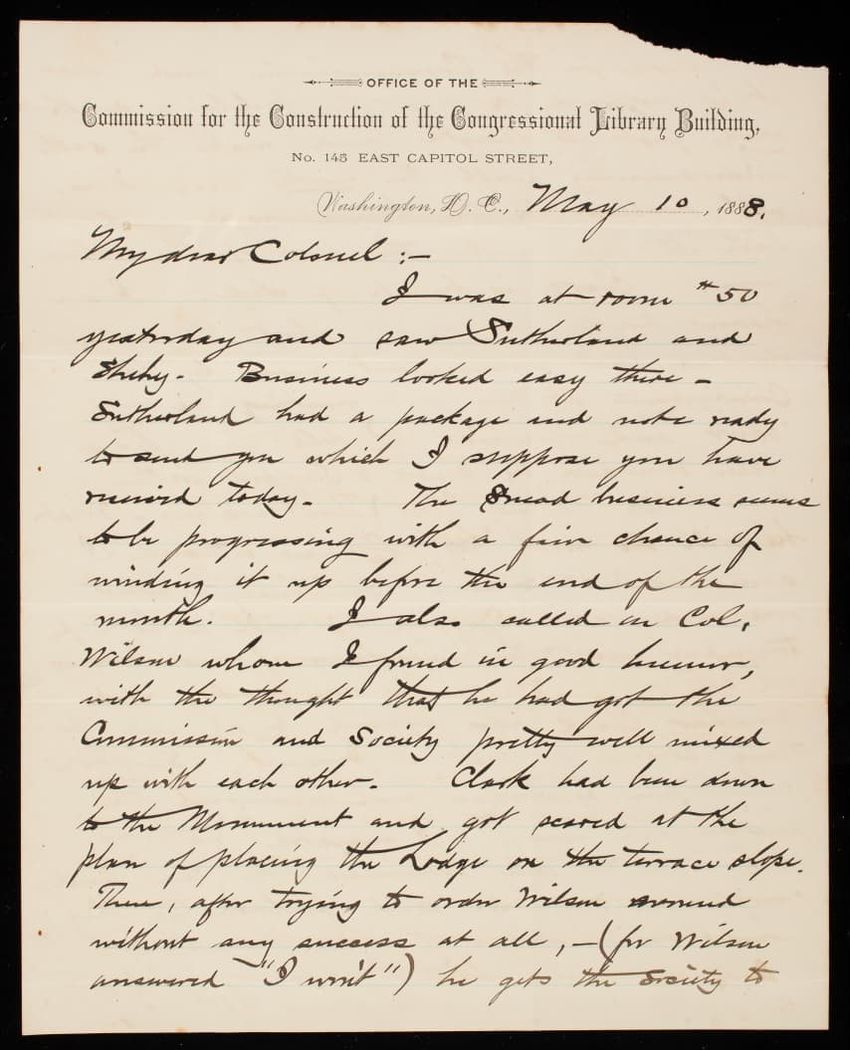 OFFICE OF THE
Commission for the Construction of the Congressional Library Building,
No. 145 EAST CAPITOL STREET,
Washington, D. C., May 10, 1888.
My dear Colonel :—
I was at room #50
yesterday and saw Sutherland and
Business looked easy there —
Sutherland had a package and note ready
to send you which I suppose you have
received today. The business seems
to be progressing with a fair chance of
winding it up before the end of the
month. I also called on Col.
Wilson whom I found in good humor,
with the thought that he had got the
Commission and Society pretty well mixed
up with each other. Clark had been down
to the Monument and got scared at the
plan of placing the Lodge on the terrace slope.
Then, after trying to order Wilson around
without any success at all, — (for Wilson
answered "I won't") he gets the Society to